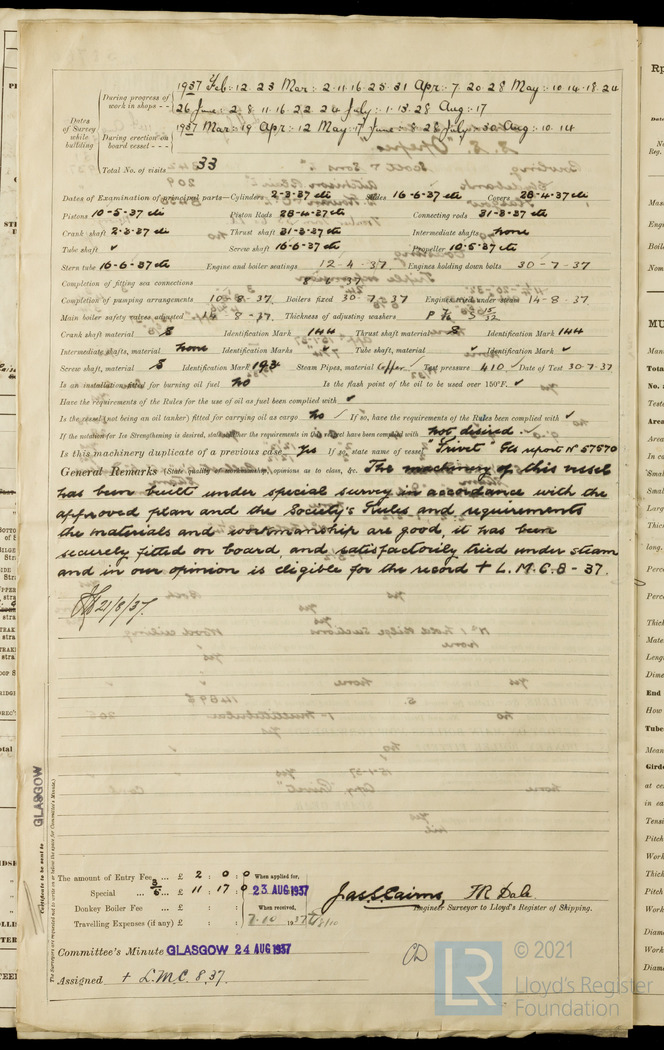 Dates of Survey while building
During progress of work in shops - -
1937 Feb: 12 23 Mar: 2·11·16 25·31 Apr: 7 20 28 May: 10·14·18·24
26 June: 2·8·11·16·22·24 July: 1·13·28 Aug: 17
During erection on board vessel - - -
1937 Mar: 19 Apr: 12 May 17 June: 8·28 July 30 Aug: 10·14
Total No. of visits 33
Dates of Examination of principal parts—Cylinders 2-3-37 etc Slides 16-6-37 etc Covers 28-4-37 etc
Pistons 10-5-37 etc Piston Rods 28-4-37 etc Connecting rods 31-3-37 etc
Crank shaft 2-3-37 etc Thrust shaft 31-3-37 etc Intermediate shafts none
Tube shaft ✓ Screw shaft 16-6-37 etc Propeller 10-5-37 etc
Stern tube 16-6-37 etc Engine and boiler seatings 12·4·37 Engines holding down bolts 30·7·37
Completion of fitting sea connections 8·6·37
Completion of pumping arrangements 10·8·37 Boilers fixed 30·7·37 Engines tried under steam 14·8·37
Main boiler safety valves adjusted 14·8·37 Thickness of adjusting washers
Crank shaft material S Identification Mark 144 Thrust shaft material S Identification Mark 144
Intermediate shafts, material none Identification Marks ✓ Tube shaft, material ✓ Identification Mark ✓
Screw shaft, material S Identification Mark 193 Steam Pipes, material Copper Test pressure 410 Date of Test 30·7·37
Is an installation fitted for burning oil fuel no Is the flash point of the oil to be used over 150°F. ✓
Have the requirements of the Rules for the use of oil as fuel been complied with ✓
Is the vessel (not being an oil tanker) fitted for carrying oil as cargo no If so, have the requirements of the Rules been complied with ✓
If the notation for Ice Strengthening is desired, state whether the requirements in this respect have been complied with not desired
Is this machinery duplicate of a previous case Yes If so, state name of vessel "Trivet" Gls report No 57570
General Remarks (State quality of workmanship, opinions as to class, &c. The machinery of this vessel
has been built under special survey in accordance with the
approved plan and the Society's Rules and requirements
the materials and workmanship are good, it has been
securely fitted on board and satisfactorily tried under steam
and in our opinion is eligible for the record + L.M.C. 8-37.
21/8/37.
GLASGOW
Certificate to be sent to
The amount of Entry Fee ... £ 2 : 0 : 0 When applied for,
Special ... £ 11 : 17 : 0 23 AUG 1937
Donkey Boiler Fee ... £ : : When received,
Travelling Expenses (if any) £ : : 7-10 1937
Jas S Cairns, TR Dale
Engineer Surveyor to Lloyd's Register of Shipping.
Committee's Minute GLASGOW 24 AUG 1937
Assigned + L.M.C. 8.37.
LR © 2021
Lloyd's Register
Foundation